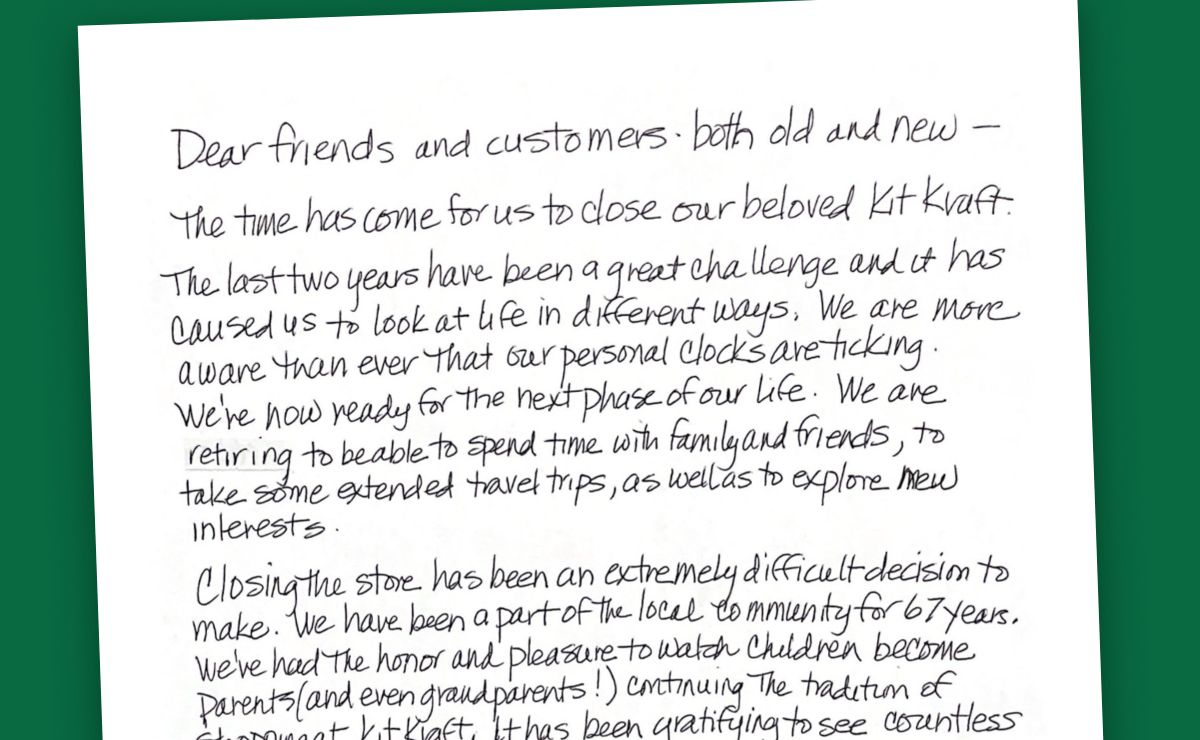 Dear friends and customers - both old and new —
The time has come for us to close our beloved Kit Kraft.
The last two years have been a great challenge and it has
caused us to look at life in different ways. We are more
aware than ever that our personal clocks are ticking.
We're now ready for the next phase of our life. We are
retiring to be able to spend time with family and friends, to
take some extended travel trips, as well as to explore new
interests.
Closing the store has been an extremely difficult decision to
make. We have been a part of the local community for 67 years.
We've had the honor and pleasure to watch children become
parents (and even grandparents!) continuing the tradition of
shopping at Kit Kraft. It has been gratifying to see countless